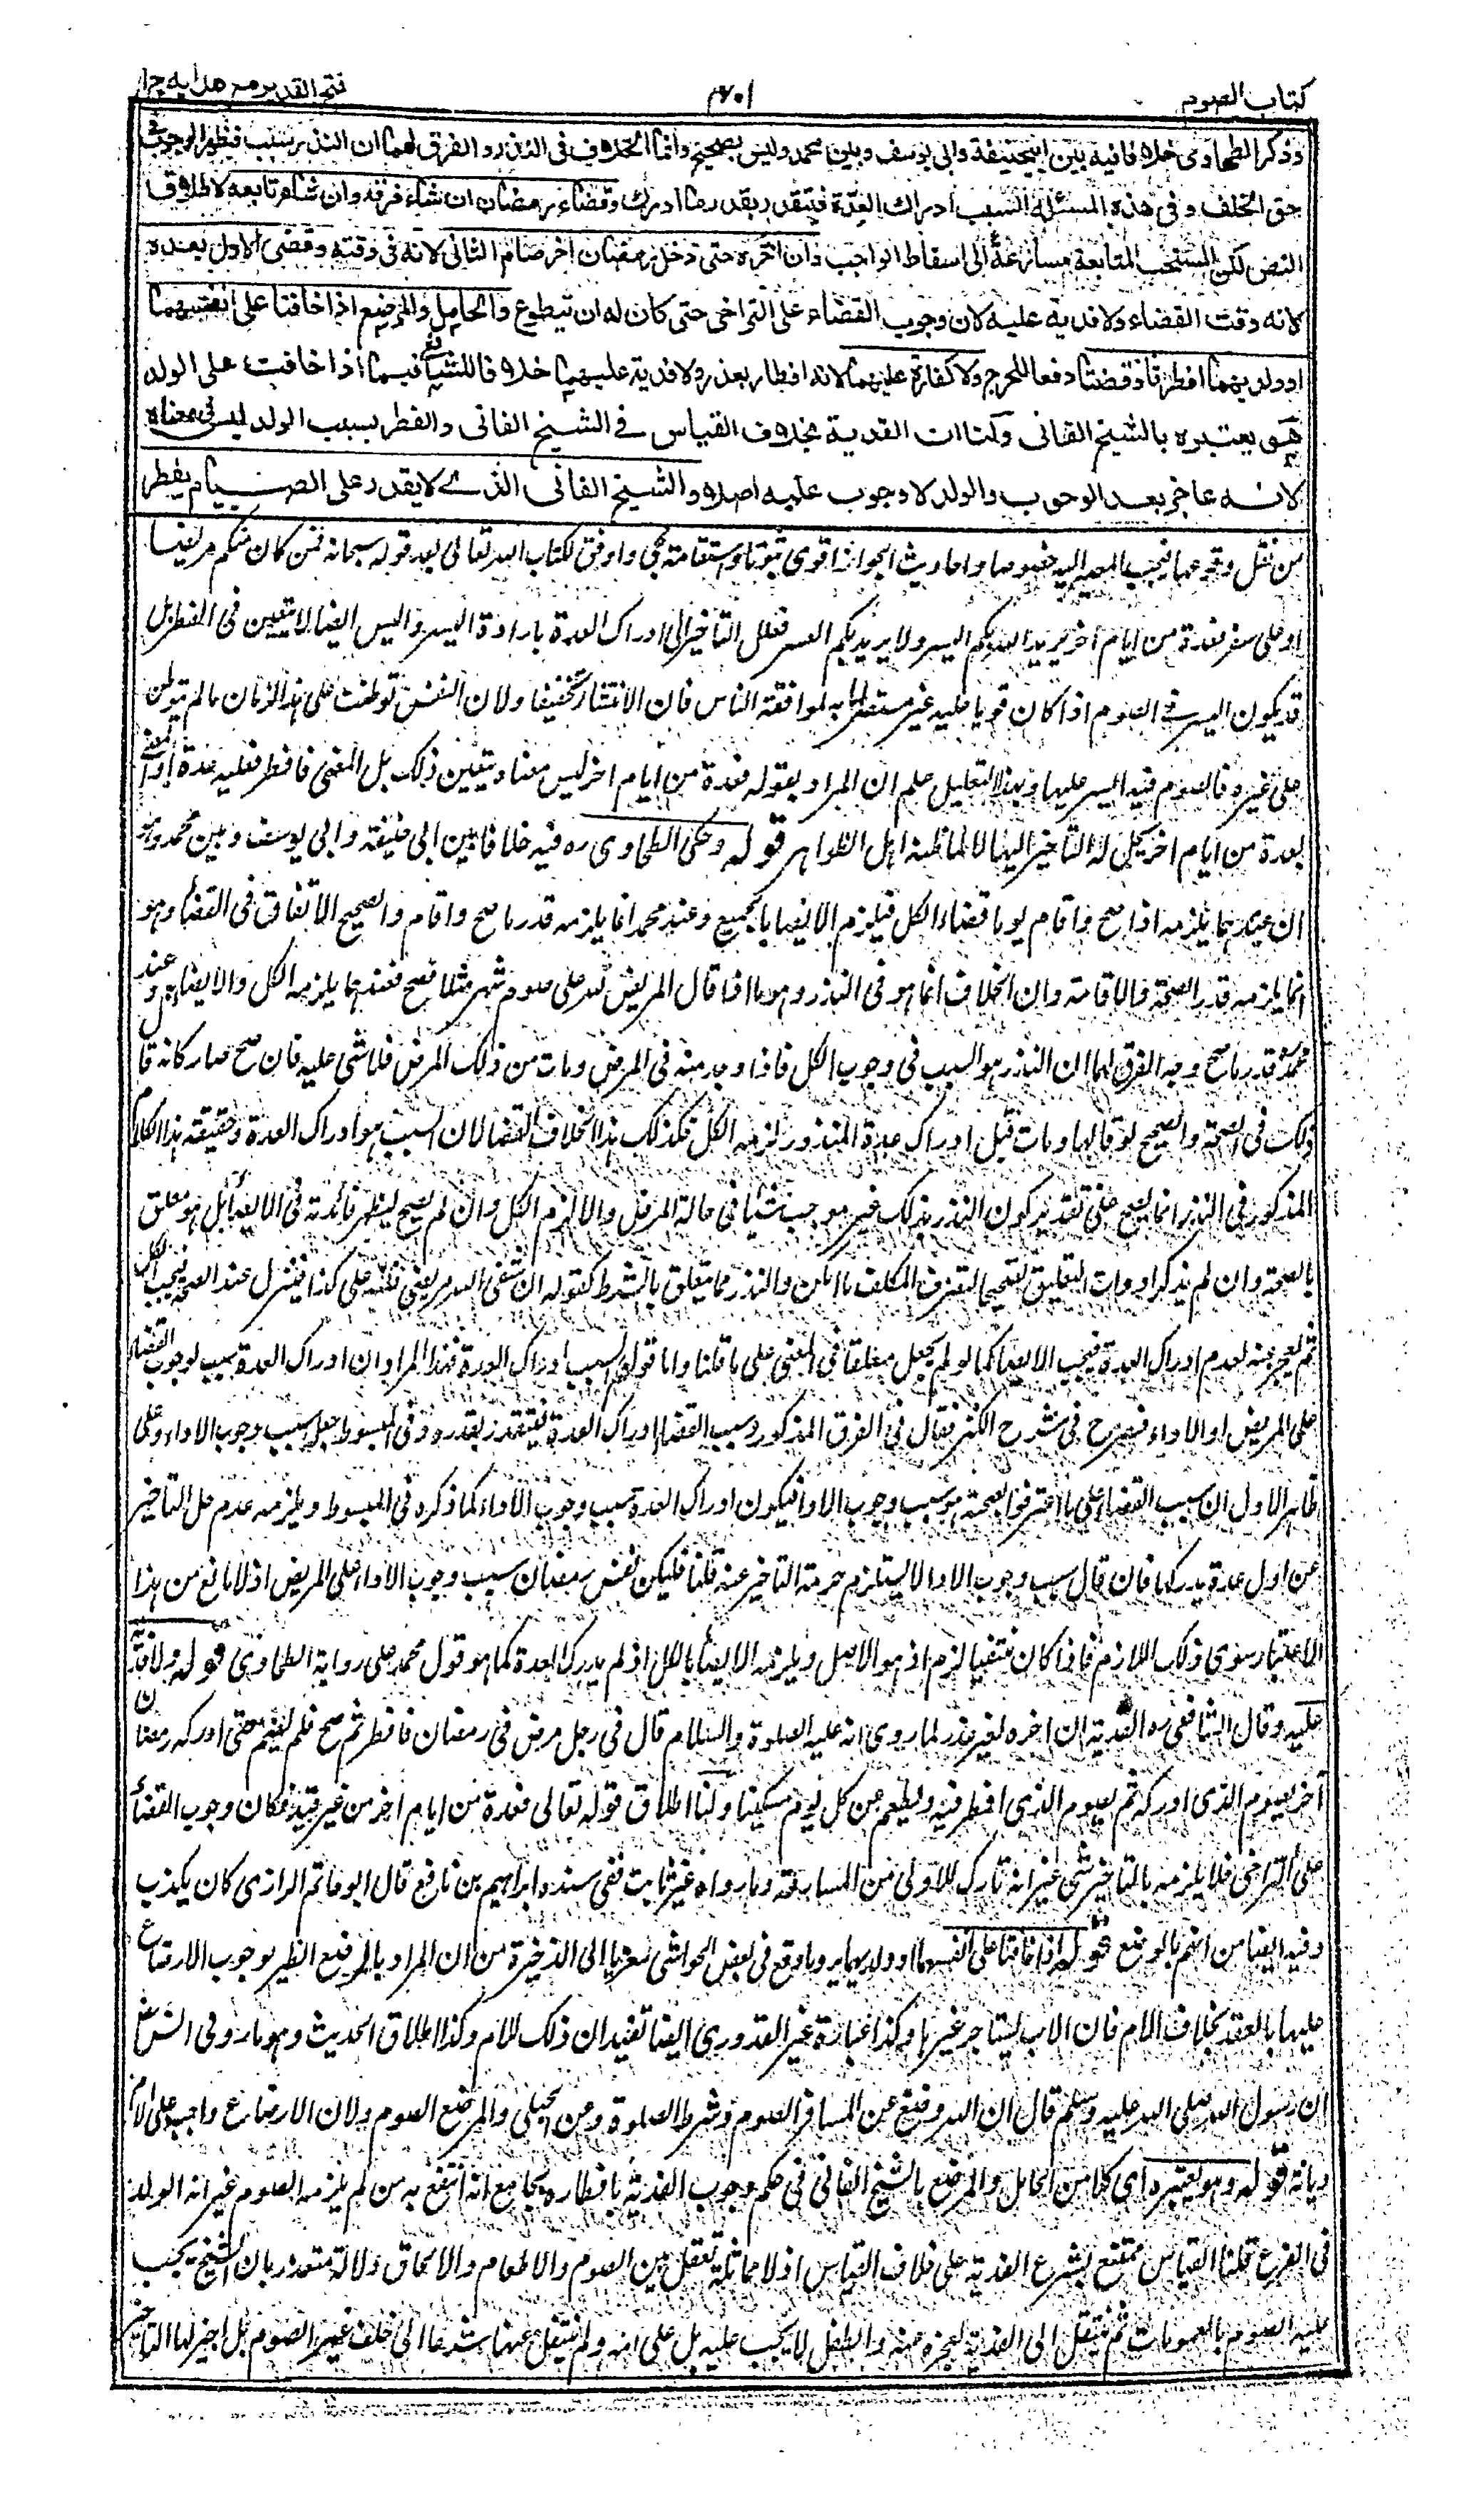 كتاب الصوم
فتح القدير مع هدايه ج ا
وذكر الطحاوى خلافا فيه بين ابيحنيفة وابى يوسف وبين محمد وليس بصحيح وانما الخلاف فى النذر والفرق لهما ان النذر سبب فيظهر الوجوب فى
حق الخلف وفى هذه المسئلة السبب ادراك العدة فيتقدر بقدر ما ادرك وقضاء رمضان ان شاء فرقه وان شاء تابعه لاطلاق
النص لكن المستحب المتابعة مسارعة الى اسقاط الواجب وان اخره حتى دخل رمضان اخر صام الثانى لانه فى وقته وقضى الاول بعده
لانه وقت القضاء ولا فدية عليه لان وجوب القضاء على التراخى حتى كان له ان يتطوع والحامل والمرضع اذا خافتا على انفسهما
او ولديهما افطرتا وقضتا دفعا للحرج ولا كفارة عليهما لانه افطار بعذر ولا فدية عليهما خلافا للشافعى فيما اذا خافت على الولد
هو يعتبره بالشيخ الفانى ولنا ان الفدية بخلاف القياس فى الشيخ الفانى والفطر بسبب الولد ليس فى معناه
لانه عاجز بعد الوجوب والولد لا وجوب عليه اصلا والشيخ الفانى الذى لا يقدر على الصيام يفطر
من نقل وقوعها فيجب المصير اليه خصوصا واحاديث الجواز اقوى ثبوتا واستقامة مجئ واوفق لكتاب الله تعالى بعد قوله سبحانه فمن كان منكم مريضا
او على سفر فعدة من ايام اخر يريد الله بكم اليسر ولا يريد بكم العسر فعلل التأخير الى ادراك العدة بارادة اليسر واليسر ايضا لا يتعين فى الفطر بل
قد يكون اليسر فى الصوم اذا كان قويا عليه غير مستضر به لموافقة الناس فان الائتساء تخفيفا ولان النفس توطنت على هذا الزمان ما لم تتوطن
على غيره فالصوم فيه ايسر عليها وبهذا التعليل علم ان المراد بقوله فعدة من ايام اخر ليس معناه يتعين ذلك بل المعنى فافطر فعليه عدة او المعنى
بعدة من ايام اخر يحل له التأخير اليها لا كما ظنه اهل الظواهر قوله وحكى الطحاوى ره فيه خلافا بين ابى حنيفة وابى يوسف وبين محمد وهو
ان عندهما يلزمه اذا صح واقام يوما قضاء الكل فيلزم الايصا بالجميع وعند محمد انما يلزمه قدر ما صح واقام والصحيح الاتفاق فى القضاء وهو
انما يلزمه قدر الصحة والاقامة وان الخلاف انما هو فى النذر وهو ما اذا قال المريض لله على صوم شهر مثلا فصح فعندهما يلزمه الكل والايصاء وعند
محمد قدر ما صح وجه الفرق لهما ان النذر هو السبب فى وجوب الكل فاذا وجد منه فى المرض ومات من ذلك المرض فلا شئ عليه فان صح صار كانه قال
ذلك فى الصحة والصحيح لو قالها ومات قبل ادراك عدة المنذور لزمه الكل فكذلك هذا بخلاف القضا لان السبب هو ادراك العدة وحقيقة هذا الكلام
المذكور فى النذر انما يصح على تقدير كون النذر بذلك غير موجب شيئا فى حالة المرض والا لزم الكل وان لم يصح ليظهر فائدته فى الايصاء بل هو معلق
بالصحة وان لم يذكر اداة التعليق تصحيحا لتصرف المكلف ما امكن والنذر مما يتعلق بالشرط كقوله ان شفى الله مريضى فلله على كذا فينزل عند الصحة فيجب الكل
ثم يعجز عنه لعدم ادراك العدة فيجب الايصاء كما لو لم يجعل معلقا فى المعنى على ما قلنا واما قوله السبب ادراك العدة فهذا المراد ان ادراك العدة سبب لوجوب القضاء
على المريض او الاداء فصرح فى شرح الكنز فقال فى الفرق المذكور وسبب القضاء ادراك العدة فيتقدر بقدره وفى المبسوط جعله سبب وجوب الاداء وعلى
ظاهر الاول ان سبب القضاء على ما اعترفوا بصحته هو سبب وجوب الاداء فيكون ادراك العدة سبب وجوب الاداء كما ذكره فى المبسوط ويلزمه عدم حل التأخير
عن اول عدة يدركها فان قال سبب وجوب الاداء لا يستلزم حرمة التأخير عنه قلنا فليكن نفس رمضان سبب وجوب الاداء على المريض اذ لا مانع من هذا
الاعتبار سوى ذلك اللازم فاذا كان منتفيا لزم اذ هو الاصل ويلزمه الايصاء بالكل اذ لم يدرك العدة كما هو قول محمد على رواية الطحاوى قوله ولا فدية
عليه وقال الشافعى ره الفدية ان اخره لغير عذر لما روى انه عليه الصلوة والسلام قال فى رجل مرض فى رمضان فافطر ثم صح فلم يصم حتى ادركه رمضان
آخر يصوم الذى ادركه ثم يصوم الذى افطر فيه ويطعم عن كل يوم مسكينا ولنا اطلاق قوله تعالى فعدة من ايام اخر من غير قيد فكان وجوب القضاء
على التراخى فلا يلزمه بالتاخير شئ غير انه تارك للاولى من المسارعة وما رواه غير ثابت ففى سنده ابراهيم بن نافع قال ابو حاتم الرازى كان يكذب
وفيه ايضا من اتهم بالوضع قوله اذا خافتا على انفسهما او ولديهما يرد ما وقع فى بعض الحواشى معزيا الى الذخيرة من ان المراد بالمرضع الظئر لوجوب الارضاع
عليها بالعقد بخلاف الام فان الاب يستاجر غيرها وكذا عبارة غير القدورى ايضا تفيد ان ذلك للام وكذا اطلاق الحديث وهو ما روى انس رض
ان رسول الله صلى الله عليه وسلم قال ان الله وضع عن المسافر الصوم وشطر الصلوة وعن الحبلى والمرضع الصوم ولان الارضاع واجب على الام
ديانة قوله وهو يعتبره اى كلا من الحامل والمرضع بالشيخ الفانى فى حكم وجوب الفدية بافطاره بجامع انه انتفع به من لم يلزمه الصوم غير انه الولد
فى الفرع قلنا القياس ممتنع بشرع الفدية على خلاف القياس اذ لا مماثلة تعقل بين الصوم والاطعام والالحاق دلالة متعذر بان الشيخ يجب
عليه الصوم بالعمومات ثم ينتقل الى الفدية لعجزه عنه والطفل لا يجب عليه بل على امه ولم ينتقل عنها شرعا الى خلف غير الصوم بل اجيز لها التأخير